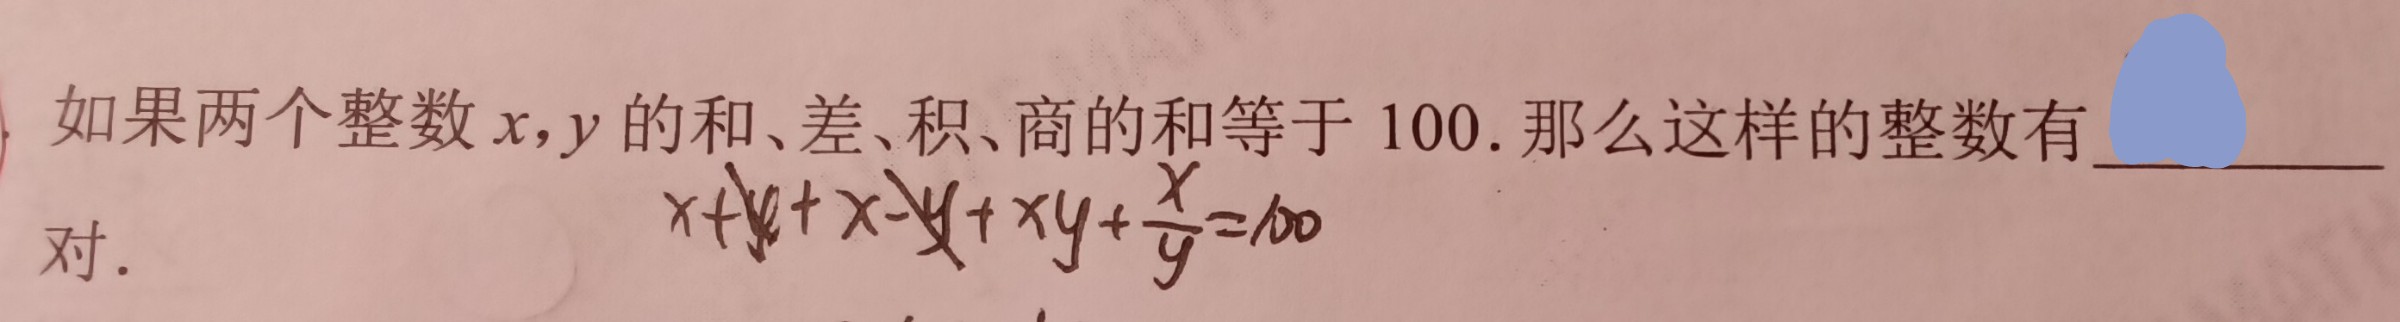 如果两个整数 x,y 的和、差、积、商的和等于 100. 那么这样的整数有
对.
x+y+x-y+xy+\frac{x}{y}=100
MATH
MATH